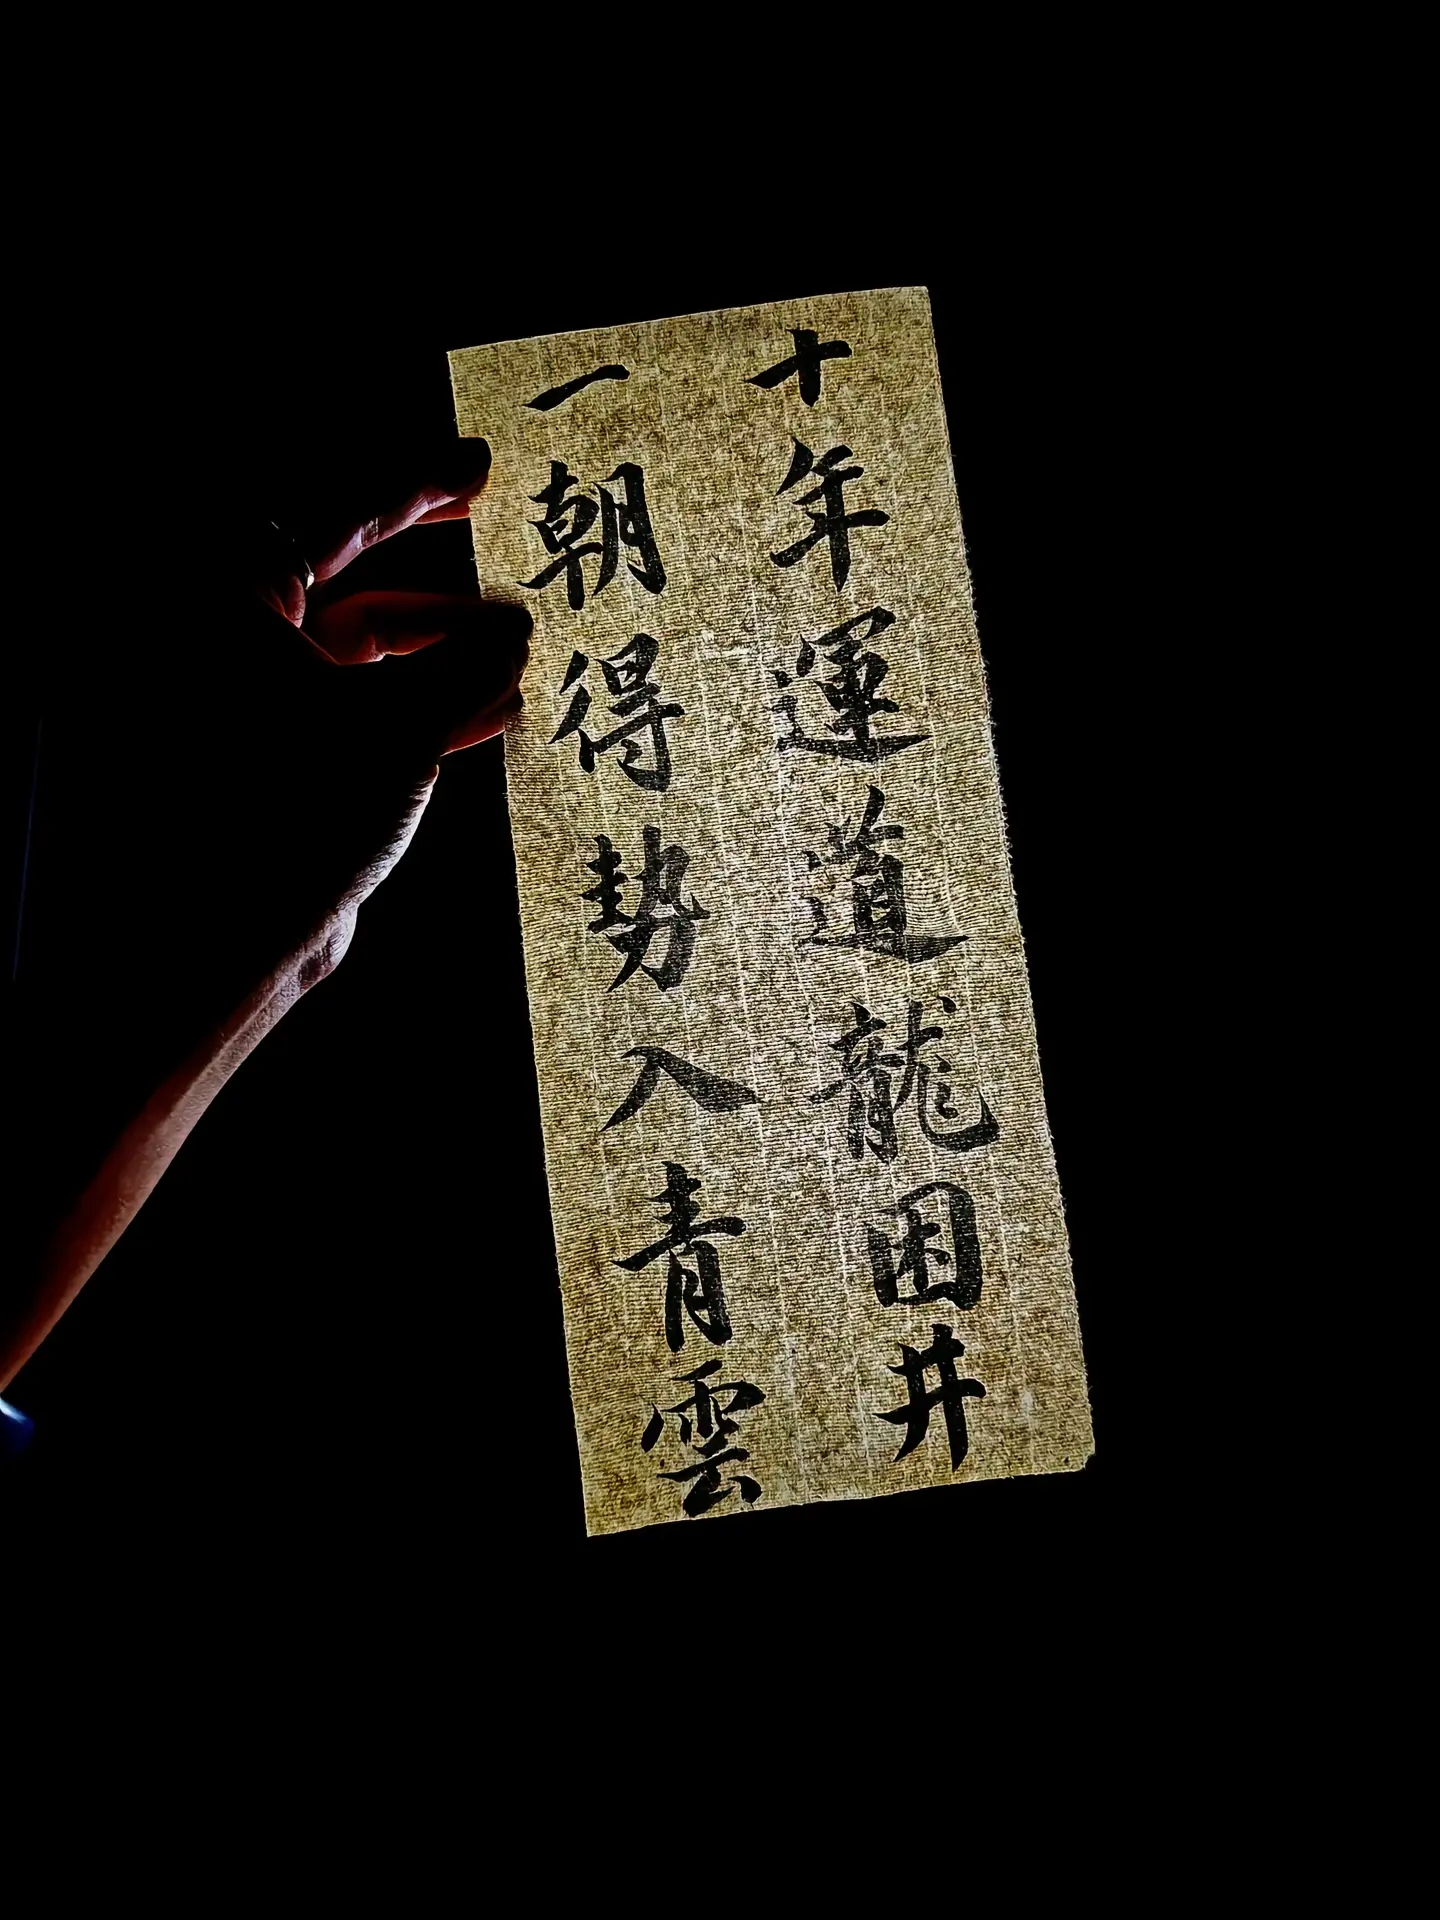 十年運道龍困井
一朝得勢入青雲